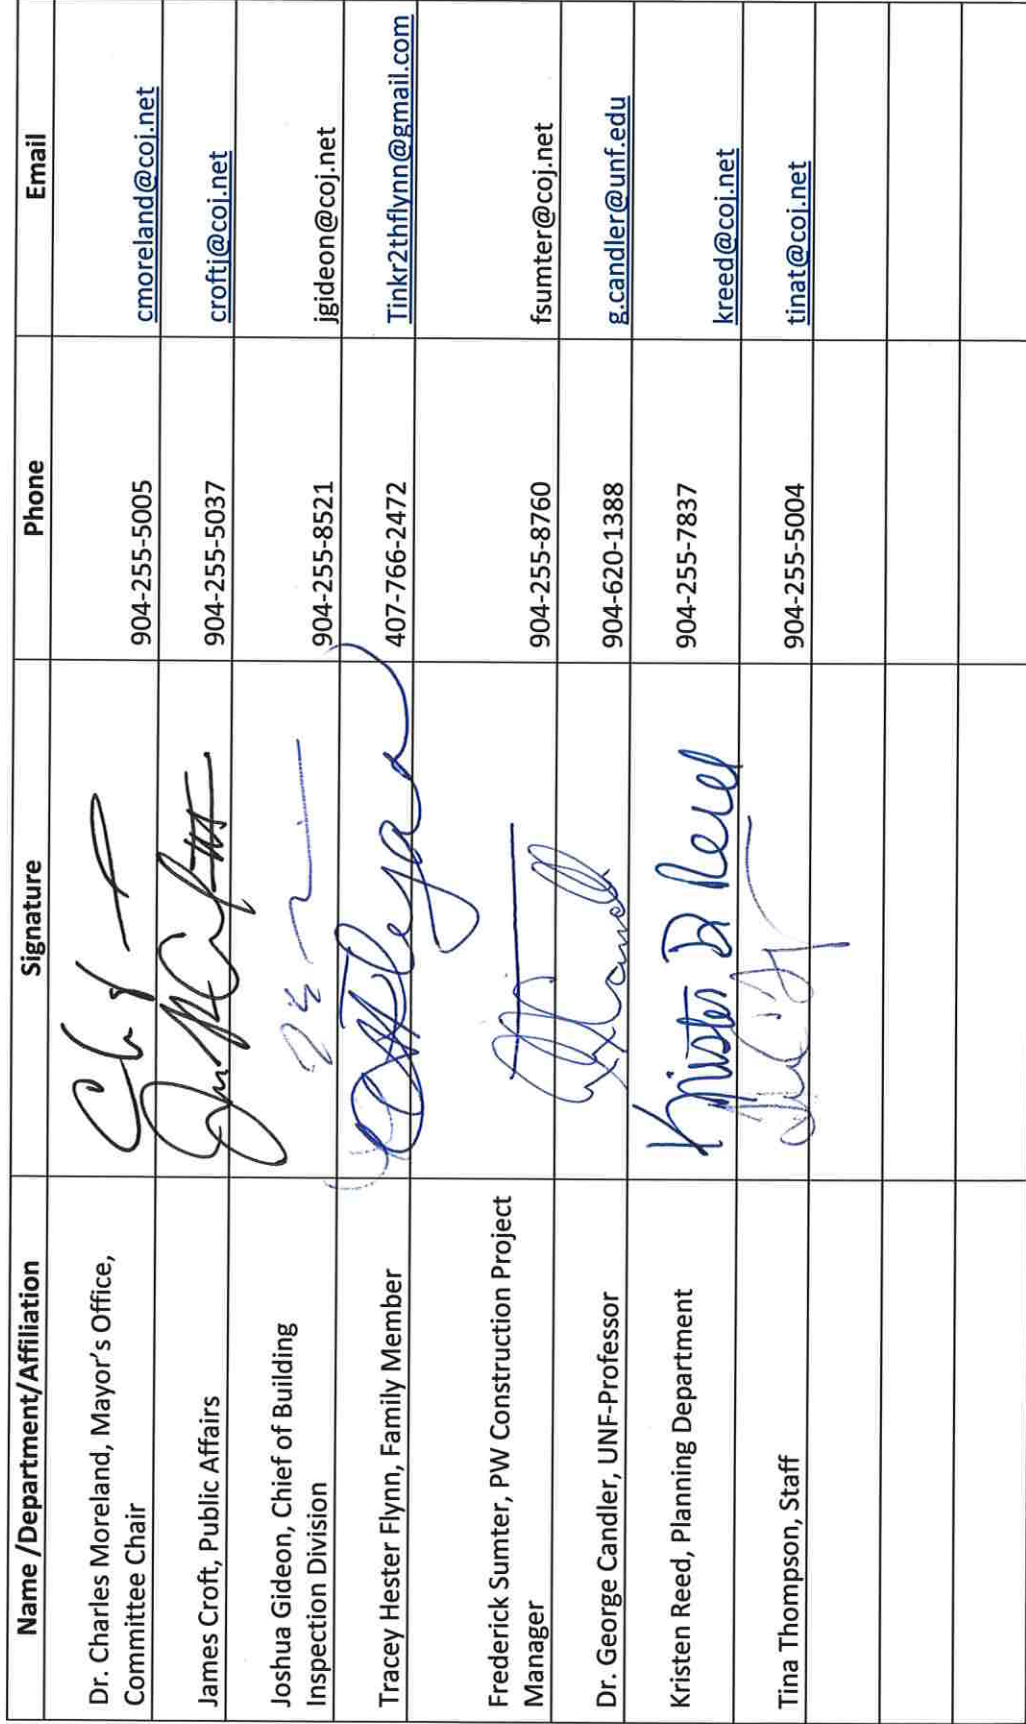 Name /Department/Affiliation Signature Phone Email
Dr. Charles Moreland, Mayor's Office,
Committee Chair 904-255-5005 cmoreland@coj.net
James Croft, Public Affairs 904-255-5037 croftj@coj.net
Joshua Gideon, Chief of Building
Inspection Division 904-255-8521 jgideon@coj.net
Tracey Hester Flynn, Family Member 407-766-2472 Tinkr2thflynn@gmail.com
Frederick Sumter, PW Construction Project
Manager 904-255-8760 fsumter@coj.net
Dr. George Candler, UNF-Professor 904-620-1388 g.candler@unf.edu
Kristen Reed, Planning Department Kristen D Reed 904-255-7837 kreed@coj.net
Tina Thompson, Staff 904-255-5004 tinat@coj.net